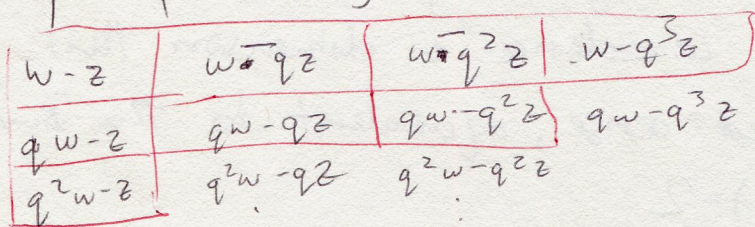 w - z   w - qz   w - q²z   w - q³z
qw - z   qw - qz   qw - q²z   qw - q³z
q²w - z   q²w - qz   q²w - q²z